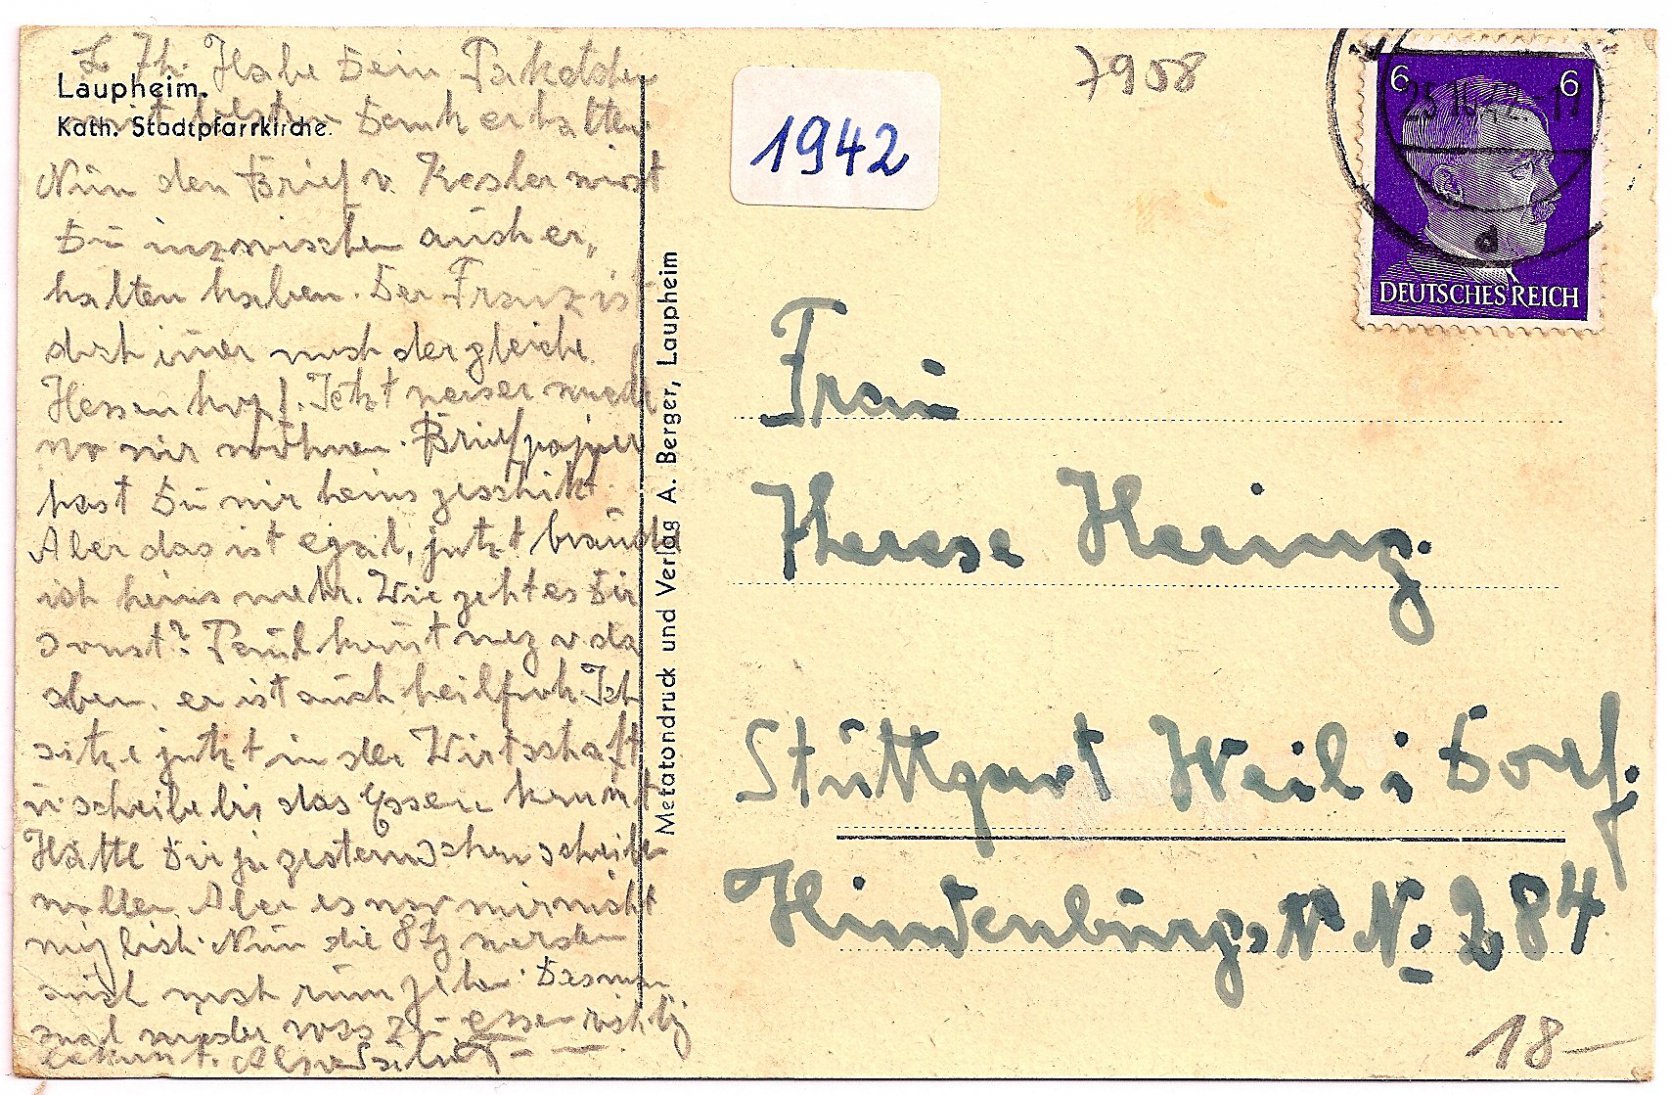 Laupheim.
Kath. Stadtpfarrkirche.
L Th. Habe Dein Paketchen
mit bestem Dank erhalten
Nun den Brief v. Kesler wirst
Du inzwischen auch er,
halten haben. Der Franz ist
doch noch der gleiche
Jetzt weiser
wo wir wohnen. Briefpapier
hast Du mir keins geschikt.
Aber das ist egal, jetzt brauche
ich keins mehr. Wie geht es Dir
sonst? Paul komt v da
oben. er ist auch heilfroh. Ich
sitze jetzt in der Wirtschaft
u schreibe bis das Essen kommt
Hätte Dir ja gestern schon schreiben
wollen. Aber es war mir nicht
möglich. Nun die 8 Tg werden
auch noch rum gehen. Das man
mal wieder was zu essen richtig
bekomt.
Metatondruck und Verlag A. Berger, Laupheim
1942
7908
6 6
25.10.42. 17
d
DEUTSCHES REICH
Frau
Therese Hering.
Stuttgart Weil i Dorf.
Hindenburgs, tr No 284
18-